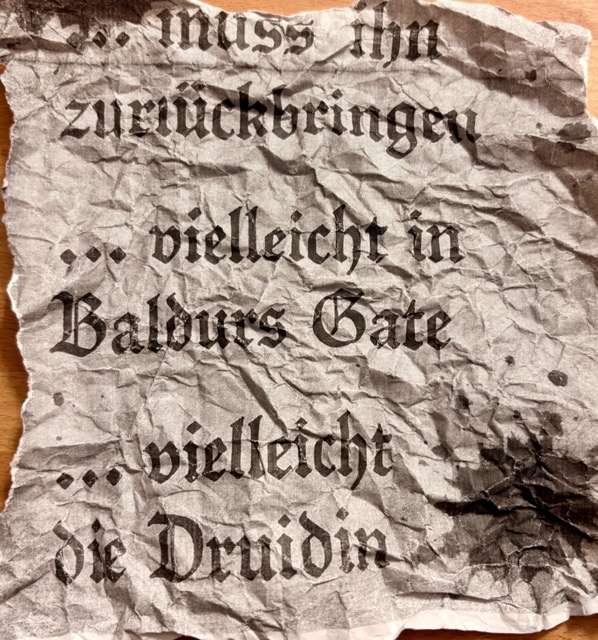 ... muss ihn
zurüückbringen
... vielleicht in
Baldurs Gate
... vielleicht
die Druidin